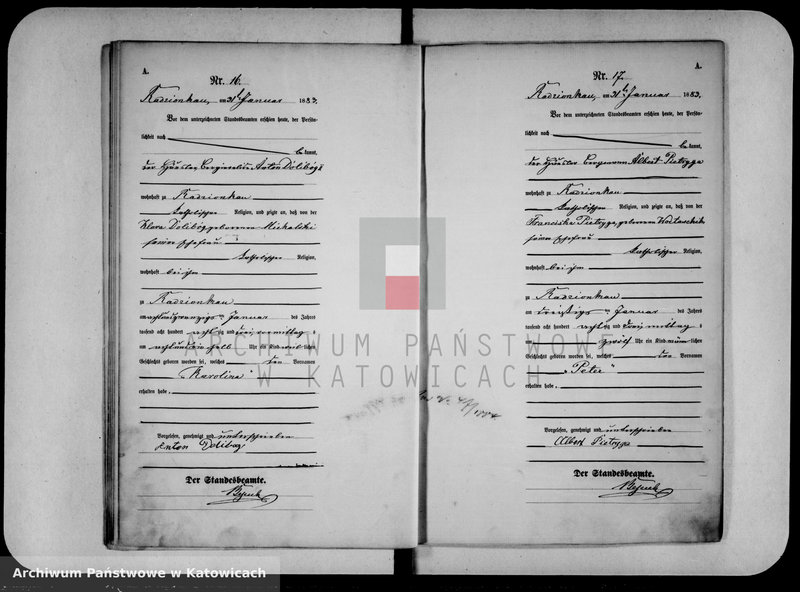 A.
Nr. 16.
Radzionkau, am 31t Januar 1883.
Vor dem unterzeichneten Standesbeamten erschien heute, der Persön-
lichkeit nach
be kannt,
der Häusler Anton Dolibog
wohnhaft zu Radzionkau
katholischer Religion, und zeigte an, daß von der
Klara Dolibog geborenen Michalski
seiner Ehefrau
katholischer Religion,
wohnhaft bei ihm
zu Radzionkau
am achtundzwanzigsten Januar des Jahres
tausend acht hundert achtzig und drei Vormittag s
um Uhr ein Kind weib lichen
Geschlechts geboren worden sei, welches den Vornamen
"Karolina"
erhalten habe.
Vorgelesen, genehmigt und unterschrieben
Anton Dolibog
Der Standesbeamte.
A.
Nr. 17.
Radzionkau, am 31t Januar 1883.
Vor dem unterzeichneten Standesbeamten erschien heute, der Persön-
lichkeit nach
be kannt,
der Häusler Bergmann Albert Pietryga
wohnhaft zu Radzionkau
katholischer Religion, und zeigte an, daß von der
Franciska Pietryga, geborenen
seiner Ehefrau
katholischer Religion,
wohnhaft bei ihm
zu Radzionkau
am dreißigsten Januar des Jahres
tausend acht hundert achtzig und drei mittag s
um zwölf Uhr ein Kind männ lichen
Geschlechts geboren worden sei, welches den Vornamen
"Peter"
erhalten habe.
Vorgelesen, genehmigt und unterschrieben
Albert Pietryga
Der Standesbeamte.
ARCHIWUM PAŃSTWOWE
W KATOWICACH
Archiwum Państwowe w Katowicach